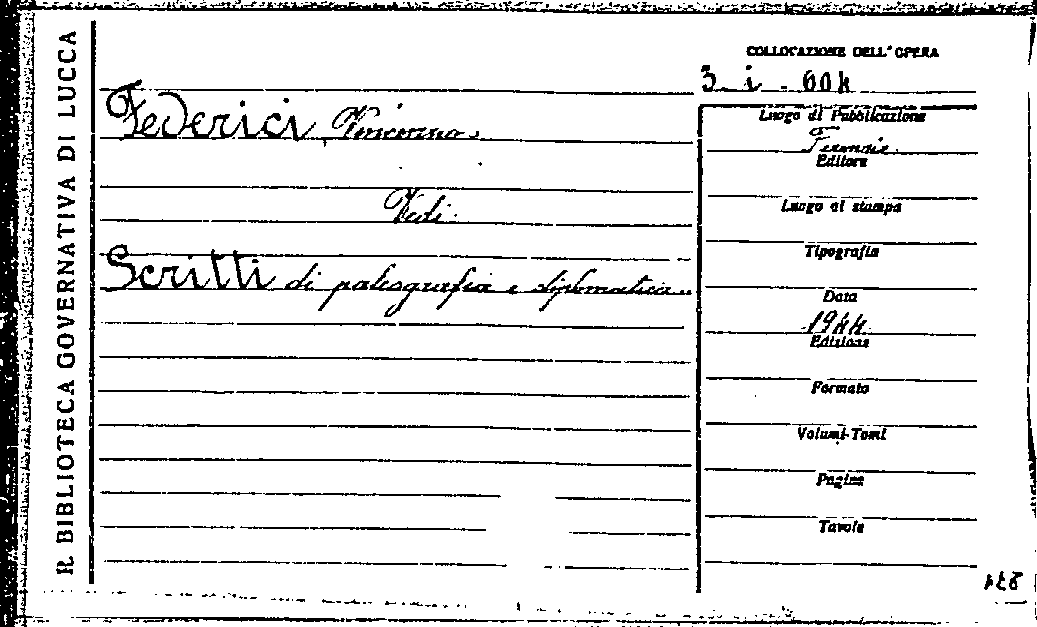 R. BIBLIOTECA GOVERNATIVA DI LUCCA
COLLOCAZIONE DELL'OPERA
3. i. 604
Federici, Vincenzo.
Vedi.
Scritti di paleografia e diplomatica..
Luogo di Pubblicazione
Firenze
Editore
Luogo di stampa
Tipografia
Data
1944
Edizione
Formato
Volumi-Tomi
Pagine
Tavole